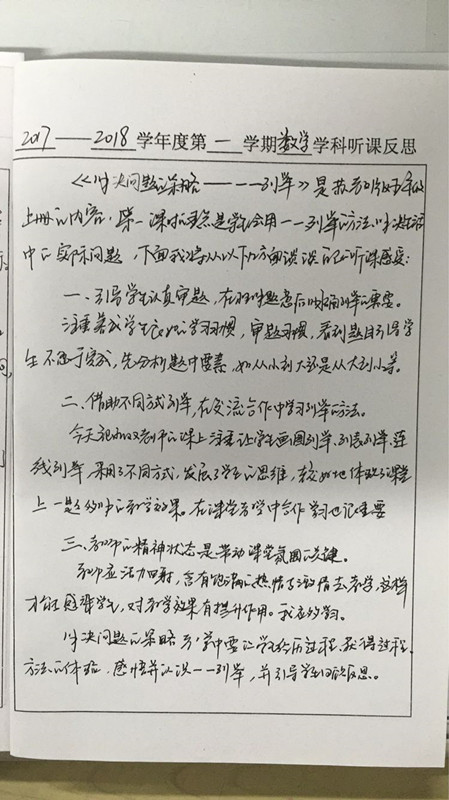 2017——2018学年度第一学期数学学科听课反思
《解决问题的策略——一一列举》是苏教版五年级
上册的内容，第一课时重点是学会用一一列举的方法解决生活
中的实际问题，下面我将从以下几方面谈谈自己听课感受：
一、引导学生认真审题，在理解题意后明确列举的需要。
注重养成学生良好的学习习惯，审题习惯，看到题目引导学
生不急于完成，先分析题中要素，如从小到大还是从大到小等。
二、借助不同方式列举，在交流合作中学习列举的方法。
今天观的老师的课上注重让学生画图列举、列表列举、连
线列举，采用了不同方式，发展了学生的思维，较好地体现了课堂
上一题多解的教学效果。在课堂教学中合作学习也很重要
三、教师的精神状态是带动课堂氛围的关键。
教师应活力四射，含有饱满的热情与激情去教学，这样
才能感染学生，对教学效果有提升作用。我应向学习。
解决问题的策略教学中要让学生经历过程、获得过程、
方法的体验，感悟并认识一一列举，并引导学生回顾反思。